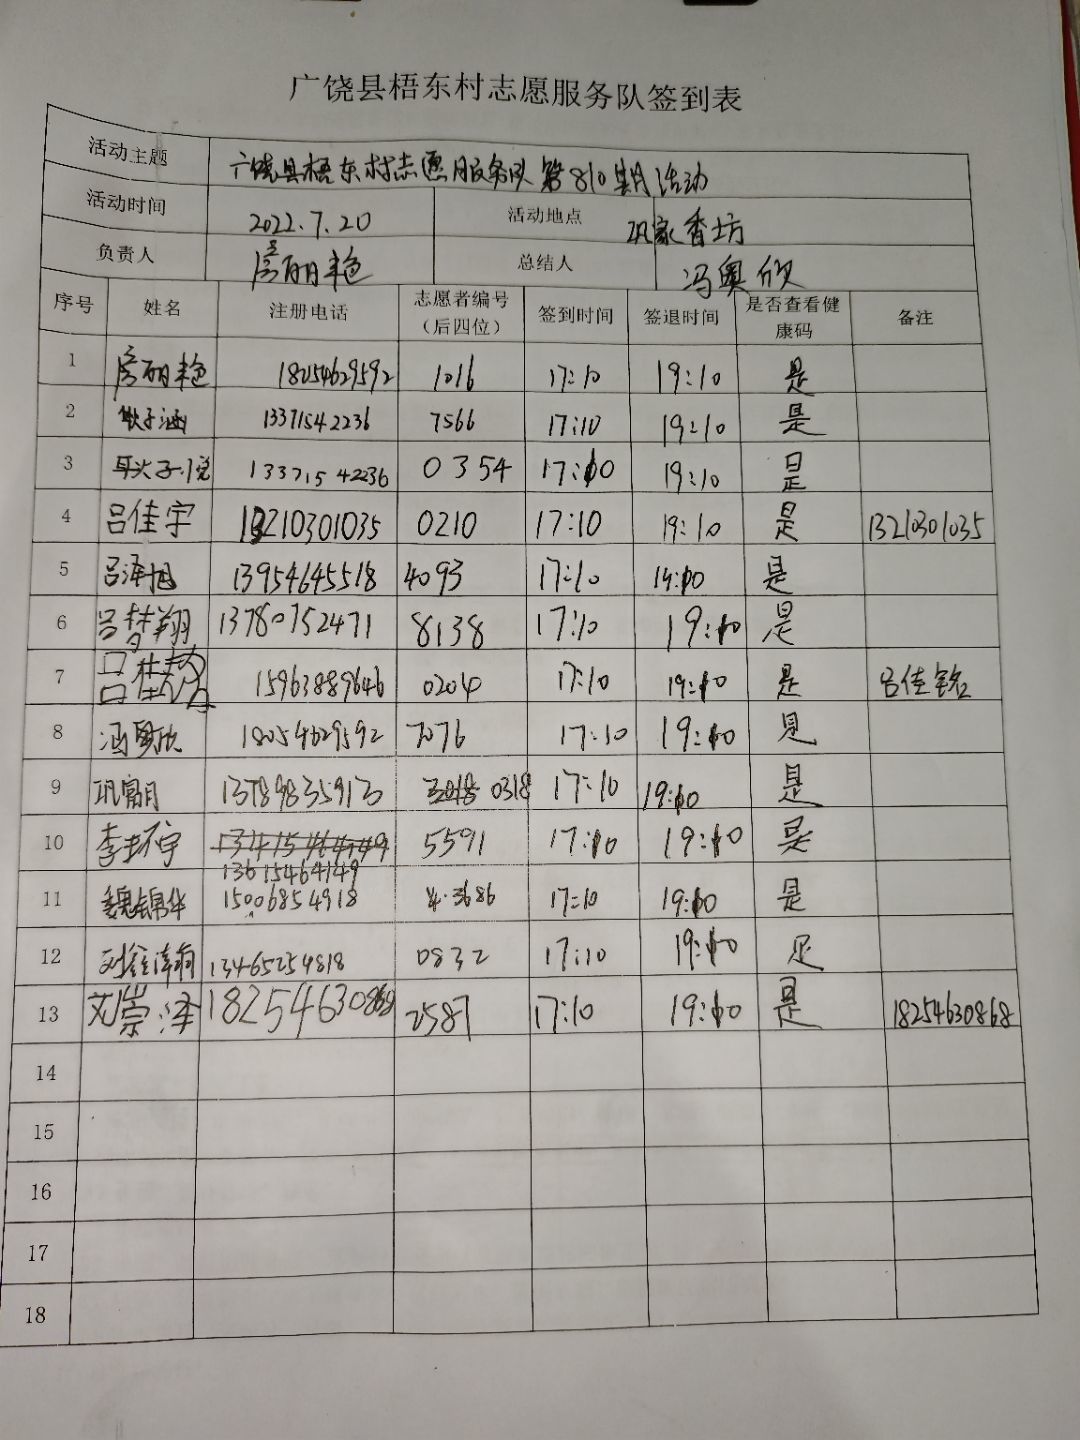 广饶县梧东村志愿服务队签到表
活动主题 广饶县梧东村志愿服务队第810期活动
活动时间 2022.7.20 活动地点 巩家香坊
负责人 房丽艳 总结人 冯奥欣
序号 姓名 注册电话 志愿者编号（后四位） 签到时间 签退时间 是否查看健康码 备注
1 房丽艳 18254629592 1016 17:10 19:10 是
2 耿子涵 13371542236 7566 17:10 19:10 是
3 耿子悦 13371542236 0354 17:10 19:10 是
4 吕佳宇 13210301035 0210 17:10 19:10 是 13210301035
5 吕泽旭 13954645518 4093 17:10 是
6 吕梦翔 13780752471 8138 17:10 19:10 是
7 吕佳铭 15963889646 0204 17:10 19:10 是 吕佳铭
8 18054629592 7076 17:10 19:10 是
9 0318 17:10 19:10 是
10 李环宇 5591 17:10 19:10 是
13615464149
11 魏锦华 15006854918 4.3686 17:10 19:10 是
12 13465254818 0832 17:10 19:10 是
13 艾崇泽 18254630868 2587 17:10 19:10 是 18254630868
14
15
16
17
18